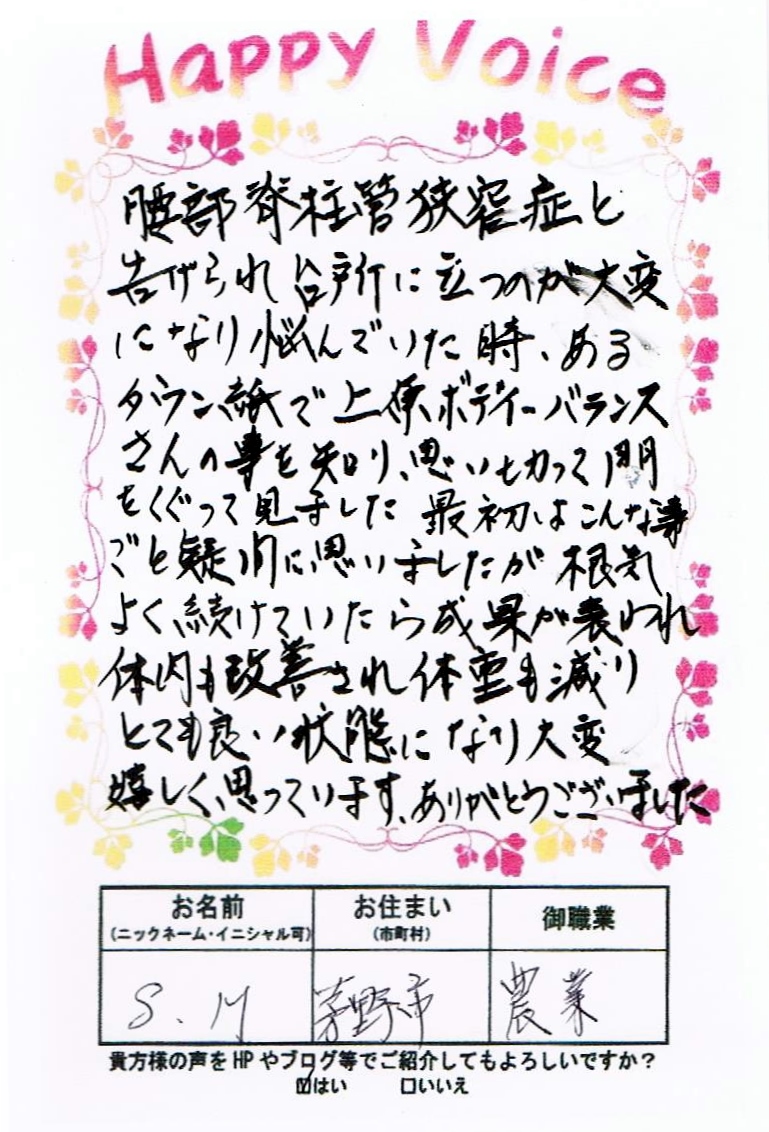 Happy Voice
腰部脊柱管狭窄症と
告げられ台所に立つのが大変
になり悩んでいた時、ある
タウン紙で上原ボディーバランス
さんの事を知り、思い切って門
をくぐって見ました 最初はこんな事
でと疑問に思いましたが根気
よく続けていたら成果が表われ
体内も改善され体重も減り
とても良い状態になり大変
嬉しく思っています、ありがとうございました
お名前 お住まい 御職業
(ニックネーム・イニシャル可) (市町村)
S.M 茅野市 農業
貴方様の声をHPやブログ等でご紹介してもよろしいですか?
☑はい □いいえ